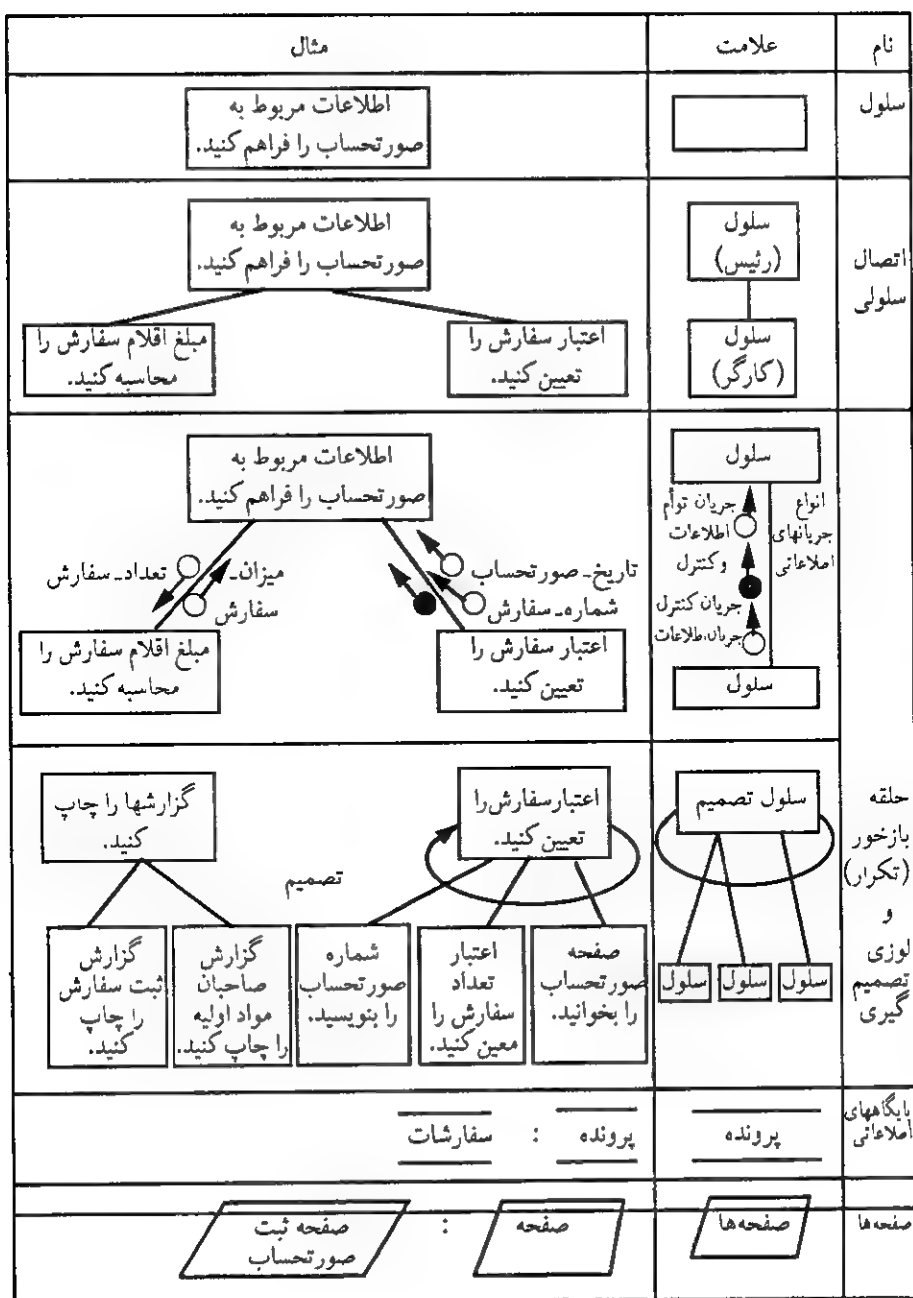 نام
علامت
مثال
سلول
اطلاعات مربوط به
صورتحساب را فراهم کنید.
اتصال
سلولی
سلول
(رئیس)
سلول
(کارگر)
اطلاعات مربوط به
صورتحساب را فراهم کنید.
اعتبار سفارش را
تعیین کنید.
مبلغ اقلام سفارش را
محاسبه کنید.
سلول
انواع
جریانهای
اطلاعاتی
جریان توأم
اطلاعات
وکنترل
جریان کنترل
جریان اطلاعات
سلول
اطلاعات مربوط به
صورتحساب را فراهم کنید.
تاریخ-صورتحساب
شماره-سفارش
میزان-
سفارش
تعداد-سفارش
اعتبار سفارش را
تعیین کنید.
مبلغ اقلام سفارش را
محاسبه کنید.
حلقه
بازخور
(تکرار)
و
لوزی
تصمیم
گیری
سلول تصمیم
سلول
سلول
سلول
اعتبار سفارش را
تعیین کنید.
صفحه
صورتحساب
را بخوانید.
اعتبار
تعداد
سفارش را
معین کنید.
شماره
صورتحساب
را بنویسید.
تصمیم
گزارشها را چاپ
کنید.
گزارش
صاحبان
مواد اولیه
را چاپ کنید.
گزارش
ثبت سفارش
را چاپ
کنید.
پایگاههای
اطلاعاتی
پرونده
پرونده : سفارشات
صفحه‌ها
صفحه‌ها
صفحه :
صفحه ثبت
صورتحساب